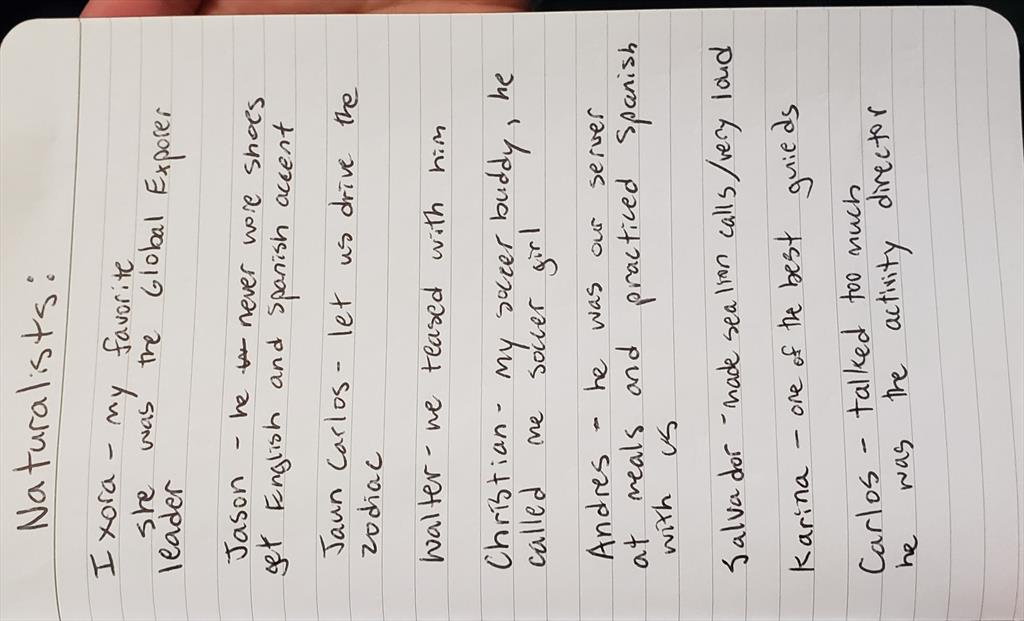 Naturalists:
Ixora - my favorite
she was the Global Exporer
leader
Jason - he never wore shoes
get English and Spanish accent
Jaun Carlos - let us drive the
zodiac
Walter - we teased with him
Christian - my soccer buddy, he
called me soccer girl
Andres - he was our server
at meals and practiced Spanish
with us
Salvador - made sealion calls/very loud
Karina - one of the best guieds
Carlos - talked too much
he was the activity director